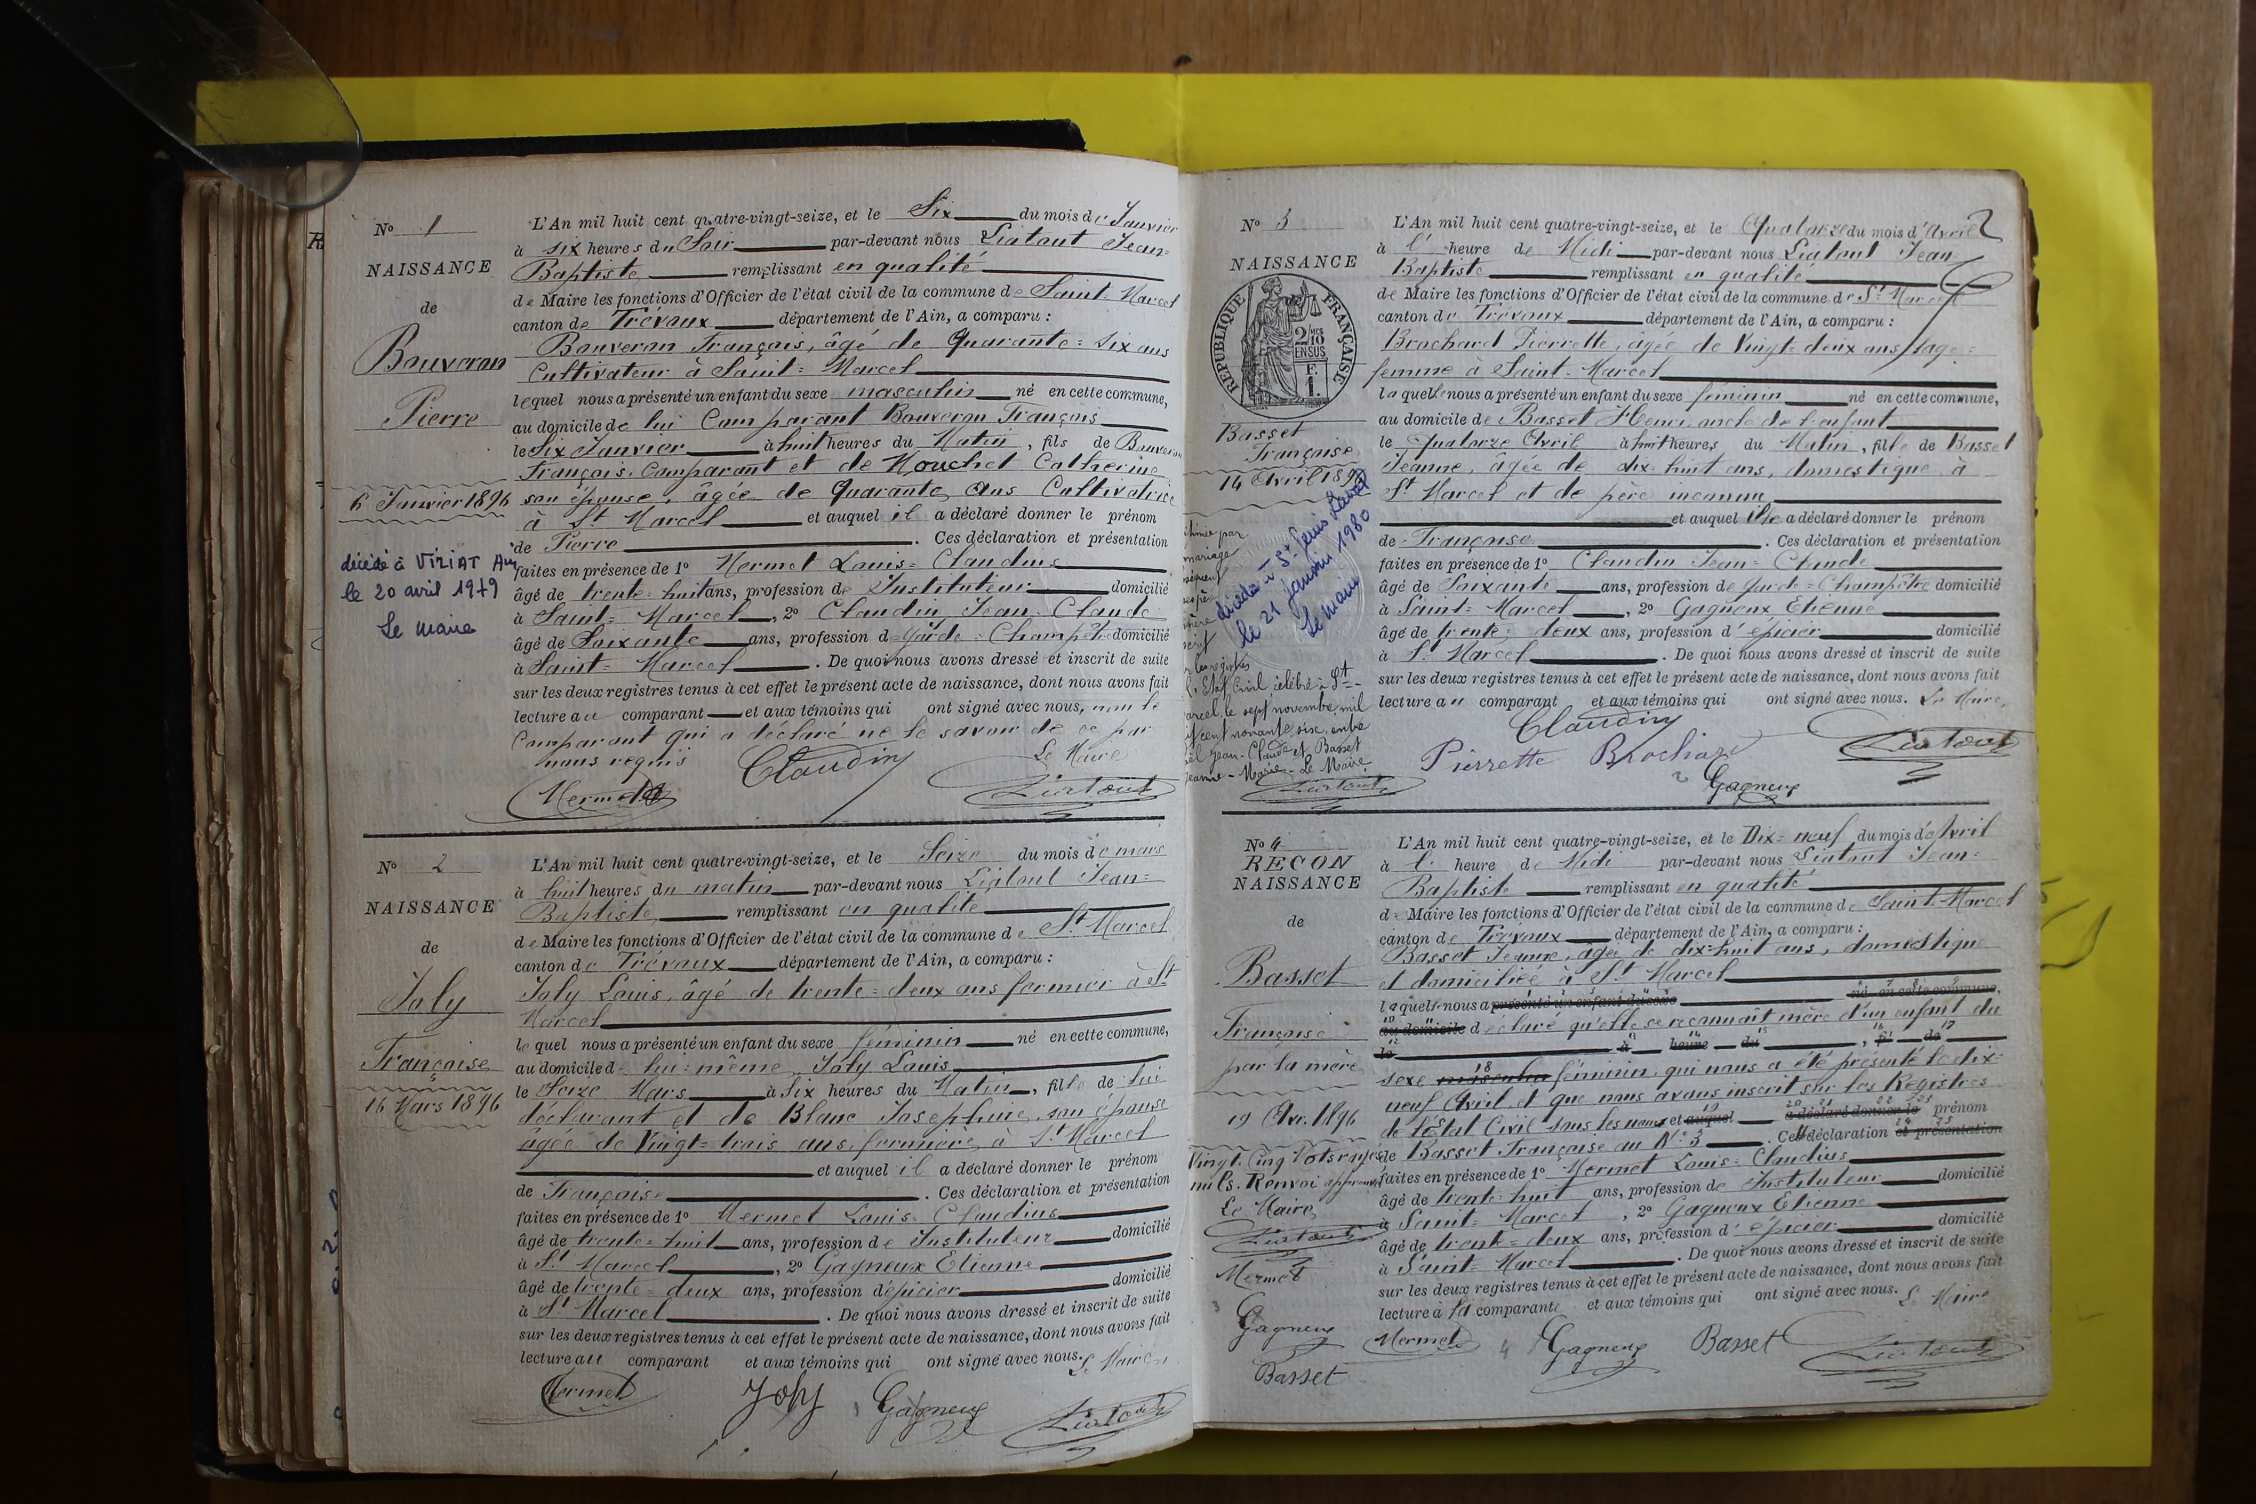 N° 1
NAISSANCE
de
Bouveron
Pierre
6 Janvier 1896
décédé à VIRIAT Ain
le 20 avril 1979
Le Maire
L'An mil huit cent quatre-vingt-seize, et le Six du mois de Janvier
à six heures du Soir par-devant nous Liatout Jean-
Baptiste remplissant en qualité
de Maire les fonctions d'Officier de l'état civil de la commune de Saint-Marcel
canton de Trévoux département de l'Ain, a comparu :
Bouveron François, âgé de Quarante-six ans
Cultivateur à Saint-Marcel
lequel nous a présenté un enfant du sexe masculin né en cette commune,
au domicile de lui Comparant Bouveron François
le Six Janvier à huit heures du Matin, fils de Bouveron
François Comparant et de Mouchet Catherine
son épouse, âgée de Quarante ans Cultivatrice
à St Marcel et auquel il a déclaré donner le prénom
de Pierre. Ces déclaration et présentation
faites en présence de 1° Mermet Louis-Claudius
âgé de trente-huit ans, profession de Instituteur domicilié
à Saint-Marcel, 2° Claudin Jean-Claude
âgé de Soixante ans, profession de Garde-Champêtre domicilié
à Saint-Marcel. De quoi nous avons dressé et inscrit de suite
sur les deux registres tenus à cet effet le présent acte de naissance, dont nous avons fait
lecture au comparant et aux témoins qui ont signé avec nous, non le
Comparant qui a déclaré ne le savoir de ce par
nous requis
Le Maire
Mermet Claudin Liatout
N° 2
NAISSANCE
de
Joly
Françoise
16 Mars 1896
L'An mil huit cent quatre-vingt-seize, et le Seize du mois de mars
à huit heures du matin par-devant nous Liatout Jean-
Baptiste remplissant en qualité
de Maire les fonctions d'Officier de l'état civil de la commune de St Marcel
canton de Trévoux département de l'Ain, a comparu :
Joly Louis, âgé de trente-deux ans fermier à St
Marcel
lequel nous a présenté un enfant du sexe féminin né en cette commune,
au domicile de lui-même Joly Louis
le Seize Mars à Six heures du Matin, fille de lui
déclarant et de Blanc Josephine son épouse
âgée de Vingt-trois ans fermière à St Marcel
et auquel il a déclaré donner le prénom
de Françoise. Ces déclaration et présentation
faites en présence de 1° Mermet Louis-Claudius
âgé de trente-huit ans, profession de Instituteur domicilié
à St Marcel, 2° Gagneux Etienne
âgé de trente-deux ans, profession d'épicier domicilié
à St Marcel. De quoi nous avons dressé et inscrit de suite
sur les deux registres tenus à cet effet le présent acte de naissance, dont nous avons fait
lecture au comparant et aux témoins qui ont signé avec nous. Le Maire
Mermet Joly Gagneux Liatout
N° 3
NAISSANCE
RÉPUBLIQUE FRANÇAISE
2/10 EN SUS
F. 1.
Basset
Françoise
14 Avril 1896
décédée à St Genis Laval
le 21 janvier 1980
Le Maire
par
mariage
les registres
Etat Civil célébré à St-
le sept novembre mil
cent nonante six, entre
Jean-Claude et Basset
Jeanne-Marie. Le Maire
Liatout
2
L'An mil huit cent quatre-vingt-seize, et le Quatorze du mois d'Avril
à l' heure de Midi par-devant nous Liatout Jean
Baptiste remplissant en qualité
de Maire les fonctions d'Officier de l'état civil de la commune de St Marcel
canton de Trévoux département de l'Ain, a comparu :
Brochard Pierrette, âgée de Vingt-deux ans, sage-
femme à Saint-Marcel
laquelle nous a présenté un enfant du sexe féminin né en cette commune,
au domicile de Basset Henri oncle de l'enfant
le Quatorze Avril à huit heures du Matin, fille de Basset
Jeanne, âgée de dix-huit ans, domestique à
St Marcel et de père inconnu
et auquel elle a déclaré donner le prénom
de Françoise. Ces déclaration et présentation
faites en présence de 1° Claudin Jean-Claude
âgé de Soixante ans, profession de Garde-Champêtre domicilié
à Saint-Marcel, 2° Gagneux Etienne
âgé de trente-deux ans, profession d'épicier domicilié
à St Marcel. De quoi nous avons dressé et inscrit de suite
sur les deux registres tenus à cet effet le présent acte de naissance, dont nous avons fait
lecture au comparant et aux témoins qui ont signé avec nous. Le Maire,
Claudin
Pierrette Brochard Liatout
Gagneux
N° 4
RECON
NAISSANCE
de
Basset
Françoise
par la mère
19 Avr. 1896
Vingt-Cinq mots rayés
nuls. Renvoi approuvé
Le Maire
Liatout
Mermet
Gagneux
Basset
L'An mil huit cent quatre-vingt-seize, et le Dix-neuf du mois d'Avril
à l' heure de Midi par-devant nous Liatout Jean-
Baptiste remplissant en qualité
de Maire les fonctions d'Officier de l'état civil de la commune de Saint-Marcel
canton de Trévoux département de l'Ain, a comparu :
Basset Jeanne, âgée de dix-huit ans, domestique
et domiciliée à St Marcel
laquelle nous a présenté un enfant du sexe né en cette commune,
au domicile déclaré qu'elle se reconnaît mère d'un enfant du
le à heure du , fi de
sexe masculin féminin qui nous a été présenté le dix-
neuf Avril et que nous avons inscrit sur les Registres
de l'Etat Civil sous les noms et auquel a déclaré donner le prénom
de Basset Françoise au N° 3. Cette déclaration et présentation
faites en présence de 1° Mermet Louis-Claudius
âgé de trente-huit ans, profession de Instituteur domicilié
à Saint-Marcel, 2° Gagneux Etienne
âgé de trente-deux ans, profession d'épicier domicilié
à Saint-Marcel. De quoi nous avons dressé et inscrit de suite
sur les deux registres tenus à cet effet le présent acte de naissance, dont nous avons fait
lecture à la comparante et aux témoins qui ont signé avec nous. Le Maire
Mermet Gagneux Basset Liatout